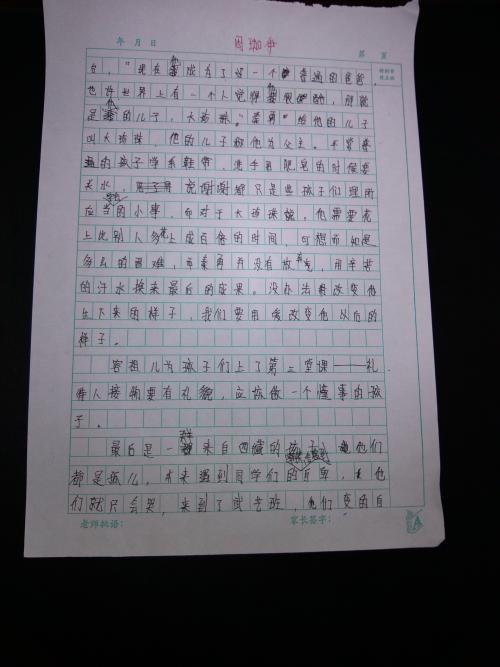 年 月 日
第 页
台，“现在他成为了一个普通的爸爸，
也许世界上有一个人觉得他很酷，那就
是他的儿子，大珍珠。”秦勇给他的儿子
叫大珍珠，他的儿子称他为父王。平常普
通的孩子学系鞋带，洗手用肥皂的时候要
关水，说谢谢都只是些孩子们理所
应当的小事，而对于大珍珠说，他需要花
上比别人多花上成百倍的时间，可想而知是
多么的困难，而秦勇并没有放弃，用辛苦
的汗水换来最后的成果。没办法有改变他
生下来的样子，我们要用爱改变他以后的
样子。
容祖儿为孩子们上了第三堂课——礼
待人接物要有礼貌，应该做一个懂事的孩
子。
最后是一群来自四川的孩子，他们
都是孤儿，本来遇到同学们的自卑，他
们就只会哭，来到了武艺班，他们变的自
老师批语：
家长签字：